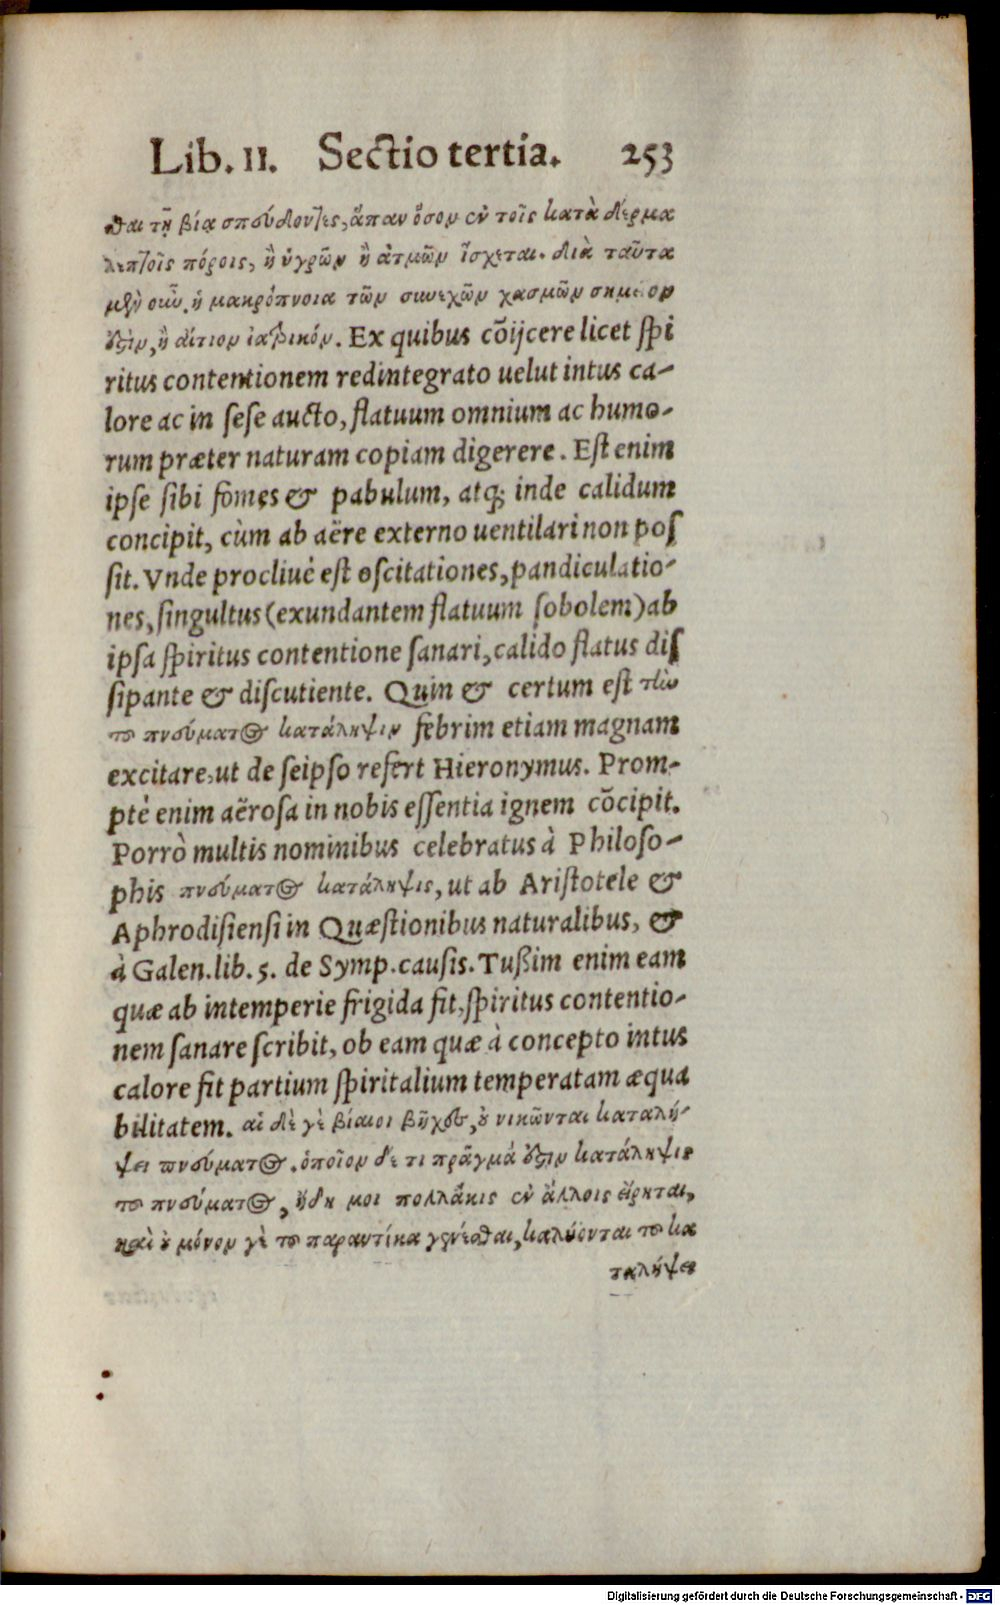 Lib. II. Sectio tertia. 253
θαι τῇ βίᾳ σπεύδοντες, ἅπαν ὅσον ἐν τοῖς κατὰ δέρμα
λεπτοῖς πόροις, ἢ ὑγρῶν ἢ ἀτμῶν ἴσχεται. διὰ ταῦτα
μὲν οὖν, ἡ μακρόπνοια τῶν συνεχῶν χασμῶν σημεῖον
ὅζιν, ἢ αἴτιον ἰατρικόν. Ex quibus cõijcere licet spi
ritus contentionem redintegrato uelut intus ca-
lore ac in sese aucto, flatuum omnium ac humo-
rum præter naturam copiam digerere. Est enim
ipse sibi fomes & pabulum, atq; inde calidum
concipit, cùm ab aëre externo uentilari non pos
sit. Vnde procliue est oscitationes, pandiculatio-
nes, singultus (exundantem flatuum sobolem) ab
ipsa spiritus contentione sanari, calido flatus dis
sipante & discutiente. Quin & certum est τὴν
τοῦ πνεύματος κατάληψιν febrim etiam magnam
excitare, ut de seipso refert Hieronymus. Prom-
ptè enim aërosa in nobis essentia ignem cõcipit.
Porrò multis nominibus celebratus à Philoso-
phis πνεύματος κατάληψις, ut ab Aristotele &
Aphrodisiensi in Quæstionibus naturalibus, &
à Galen. lib. 5. de Symp. causis. Tußim enim eam
quæ ab intemperie frigida fit, spiritus contentio-
nem sanare scribit, ob eam quæ à concepto intus
calore fit partium spiritalium temperatam æqua
bilitatem. αἱ δὲ γὲ βίαιοι βῆχες, ὀ νικῶνται καταλή-
ψει πνεύματος. ὁποῖον δέ τι πρᾶγμά ὅζιν κατάληψις
τοῦ πνεύματος, ἤδη μοι πολλάκις ἐν ἄλλοις εἴρηται,
καὶ ὀ μόνον γὲ τοῦ παραυτίκα γενέσθαι, κωλύονται τοῦ κα
ταλήψει
Digitalisierung gefördert durch die Deutsche Forschungsgemeinschaft - DFG